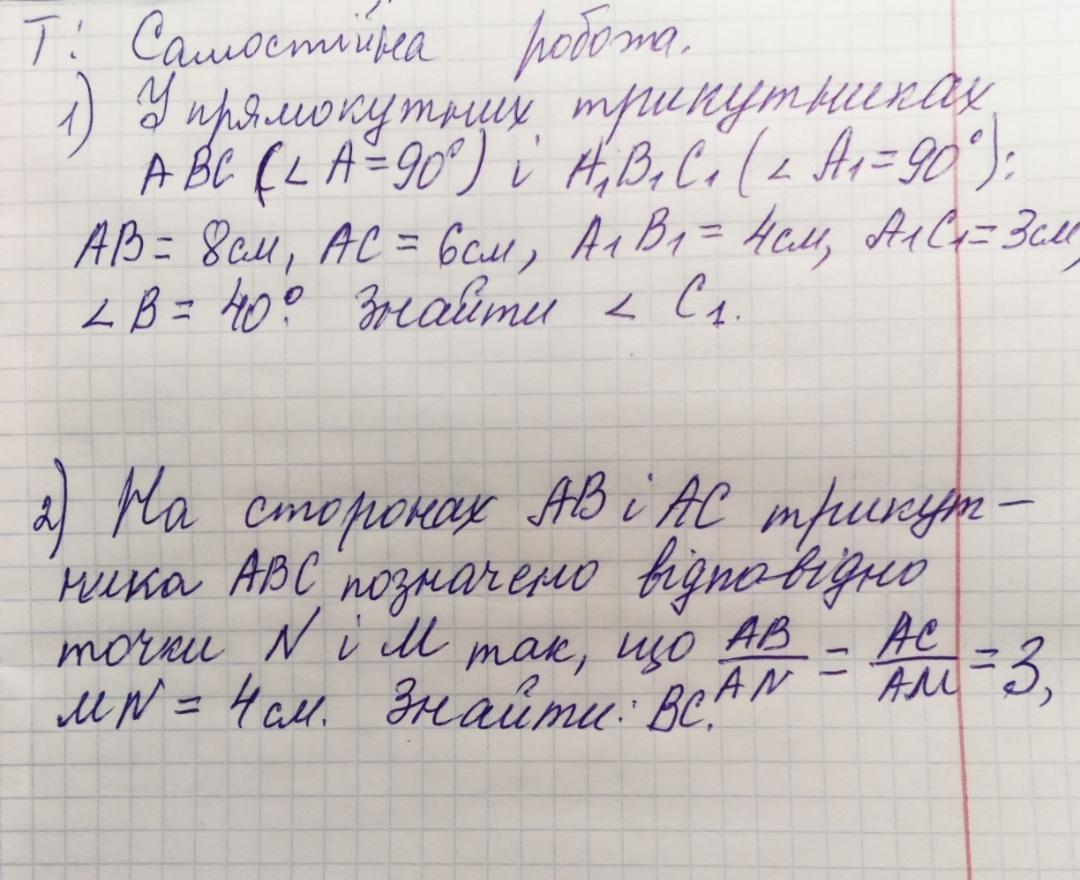 Т: Самостійна робота.
1) У прямокутних трикутниках
ABC (∠ A = 90°) і A₁B₁C₁ (∠ A₁ = 90°):
AB = 8см, AC = 6см, A₁B₁ = 4см, A₁C₁ = 3см,
∠ B = 40°. Знайти ∠ C₁.
2) На сторонах AB і AC трикут-
ника ABC позначено відповідно
точки N і M так, що AB/AN = AC/AM = 3,
MN = 4см. Знайти: BC.